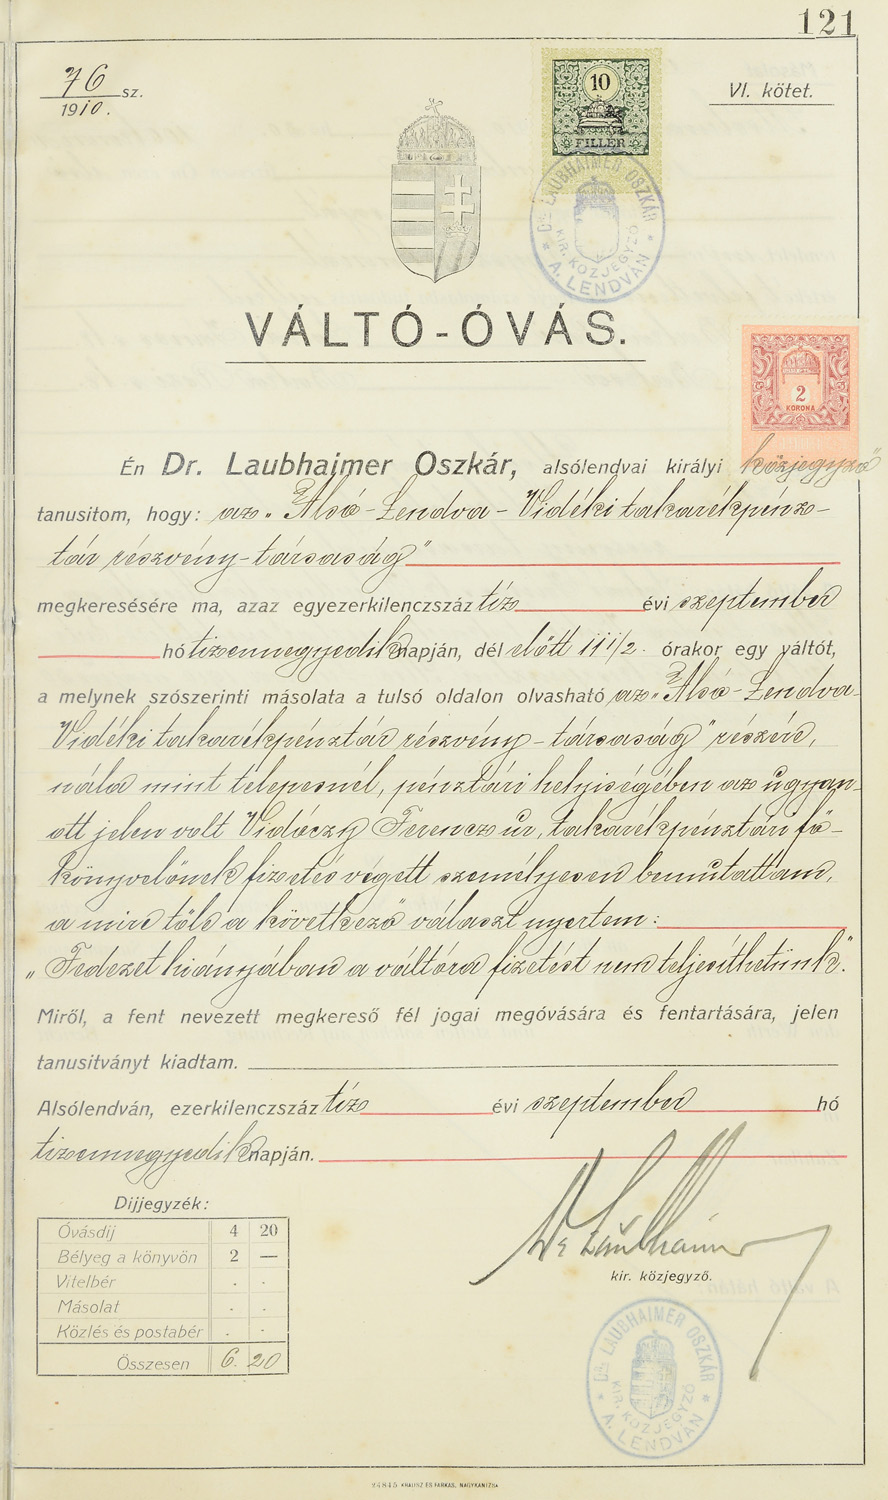 121
76 sz.
1910.
VI. kötet.
10
FILLÉR
Dr. LAUBHAIMER OSZKÁR
KIR. KÖZJEGYZŐ
* A. LENDVÁN *
VÁLTÓ-ÓVÁS.
2
KORONA
Én Dr. Laubhaimer Oszkár, alsólendvai királyi közjegyző
tanusitom, hogy: az „Alsó-Lendva-Vidéki takarékpénz-
tár részvény-társaság"
megkeresésére ma, azaz egyezerkilenczszáz tíz évi szeptember
hó tizennegyedik napján, dél előtt 11 1/2. órakor egy váltót,
a melynek szószerinti másolata a tulsó oldalon olvasható az „Alsó-Lendva-
Vidéki takarékpénztár részvény-társaság" részére,
nála mint telepesnél, pénztári helyiségében az ugyan-
ott jelen volt Vidóczy Ferencz úr, takarékpénztári fő-
könyvelőnek fizetés végett személyesen bemutattam,
a mire tőle a következő választ nyertem:
„Fedezet hiányában a váltóra fizetést nem teljesíthetünk."
Miről, a fent nevezett megkereső fél jogai megóvására és fentartására, jelen
tanusitványt kiadtam.
Alsólendván, ezerkilenczszáz tíz évi szeptember hó
tizennegyedik napján.
Dijjegyzék:
Óvásdij 4 20
Bélyeg a könyvön 2 —
Vitelbér . .
Másolat . .
Közlés és postabér . .
Összesen 6. 20
Dr Laubhaimer
kir. közjegyző.
Dr. LAUBHAIMER OSZKÁR
KIR. KÖZJEGYZŐ
* A. LENDVÁN *
24845 KRAUSZ ÉS FARKAS, NAGYKANIZSA